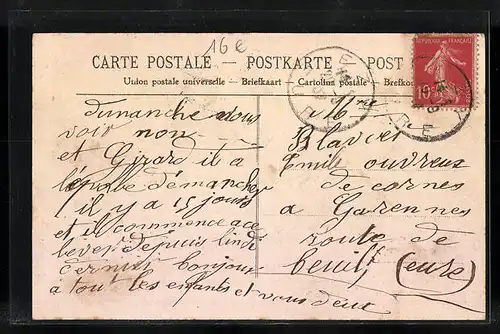 16e
CARTE POSTALE — POSTKARTE — POST
Union postale universelle — Briefkaart — Cartolina postale — Brefko
REPUBLIQUE FRANÇAISE
10
dimanche vous
voir non
et Girard il à
démanche
il y a 15 jours
et il commence a se
lever depuis
bonjour
à tout les enfants et vous deux
Mme
Blavet
Emile ouvreur
de cornes
a Garennes
route de
beuil (eure)